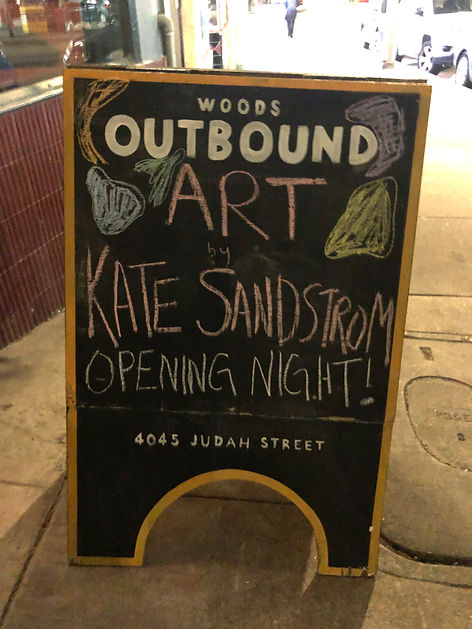 WOODS
OUTBOUND
ART
by
KATE SANDSTROM
OPENING NIGHT!
4045 JUDAH STREET